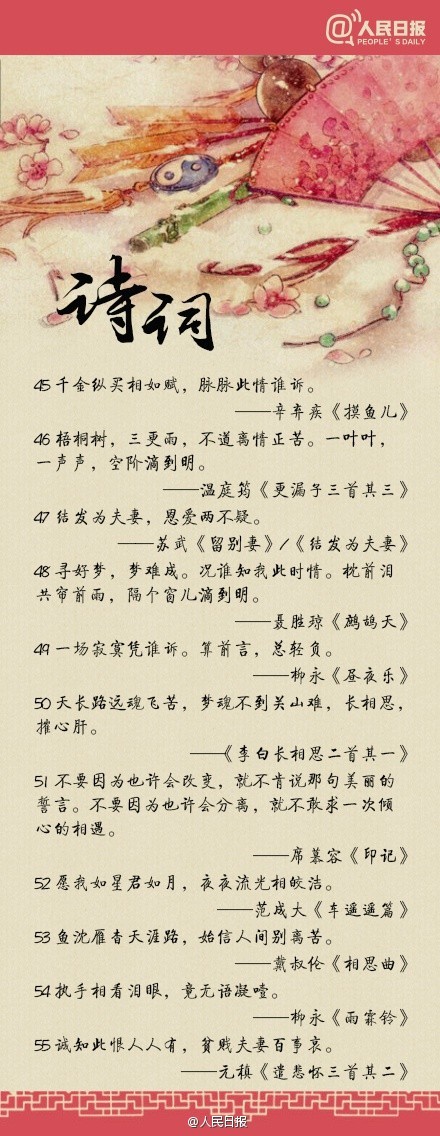 @人民日报
PEOPLE'S DAILY
诗词
45 千金纵买相如赋，脉脉此情谁诉。
——辛弃疾《摸鱼儿》
46 梧桐树，三更雨，不道离情正苦。一叶叶，
一声声，空阶滴到明。
——温庭筠《更漏子三首其三》
47 结发为夫妻，恩爱两不疑。
——苏武《留别妻》/《结发为夫妻》
48 寻好梦，梦难成。况谁知我此时情。枕前泪
共帘前雨，隔个窗儿滴到明。
——聂胜琼《鹧鸪天》
49 一场寂寞凭谁诉。算前言，总轻负。
——柳永《昼夜乐》
50 天长路远魂飞苦，梦魂不到关山难，长相思，
摧心肝。
——《李白长相思二首其一》
51 不要因为也许会改变，就不肯说那句美丽的
誓言。不要因为也许会分离，就不敢求一次倾
心的相遇。
——席慕容《印记》
52 愿我如星君如月，夜夜流光相皎洁。
——范成大《车遥遥篇》
53 鱼沈雁杳天涯路，始信人间别离苦。
——戴叔伦《相思曲》
54 执手相看泪眼，竟无语凝噎。
——柳永《雨霖铃》
55 诚知此恨人人有，贫贱夫妻百事哀。
——元稹《遣悲怀三首其二》
@人民日报